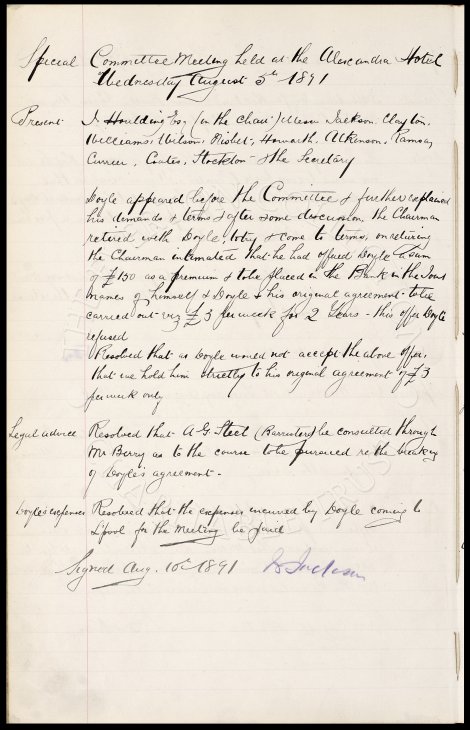 Special Committee Meeting held at the Alexandra Hotel
Wednesday August 5th 1891
Present J Houlding Esq (in the Chair) Messrs Jackson, Clayton,
Williams, Wilson, Nisbet, Howarth, Atkinson, Ramsay
Currier, Coates, Stockton & the Secretary
Doyle appeared before the Committee & further explained
his demands & terms & after some discussion, the Chairman
retired with Doyle to try & come to terms, on returning
the Chairman intimated that he had offered Doyle a sum
of £150 as a premium & to be placed in the Bank in the Joint
names of himself & Doyle & his original agreement to be
carried out viz £3 per week for 2 years - this offer Doyle
refused
Resolved that as Doyle would not accept the above offer,
that we hold him strictly to his original agreement of £3
per week only
Legal advice Resolved that A G Steel (Barrister) be consulted through
Mr Berry as to the course to be pursued re the breaking
of Doyle's agreement -
Doyle's expenses Resolved that the expenses incurred by Doyle coming to
L'pool for the Meeting be paid
Signed Aug. 10th 1891 Jackson